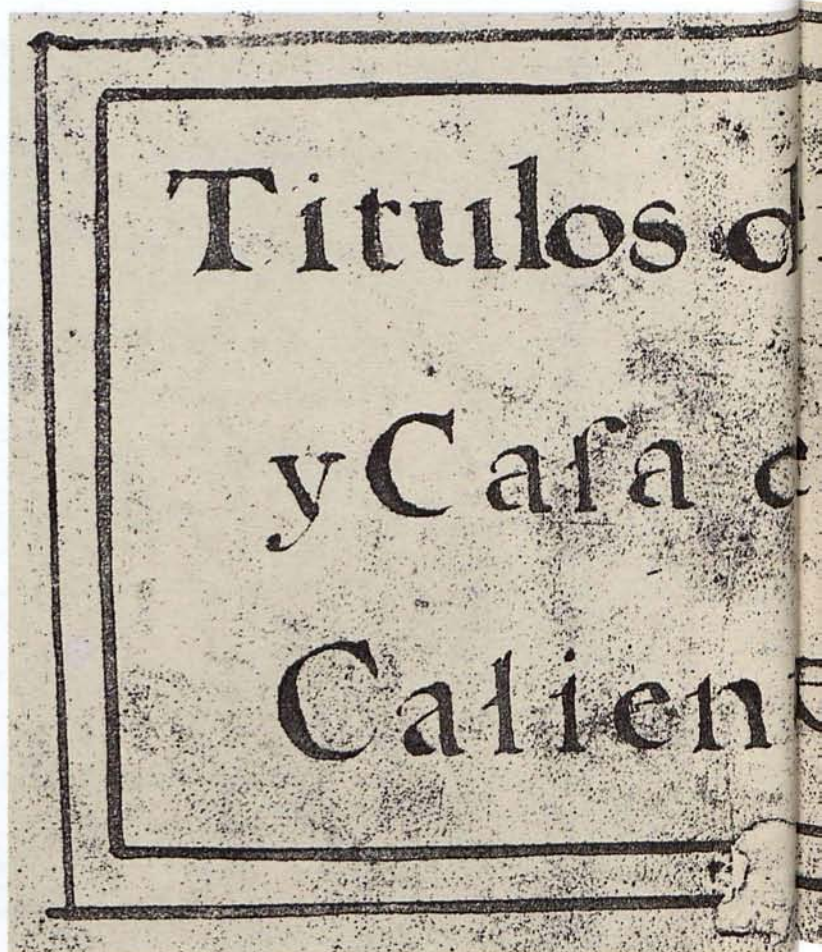 Titulos d
y Caſa c
Calient